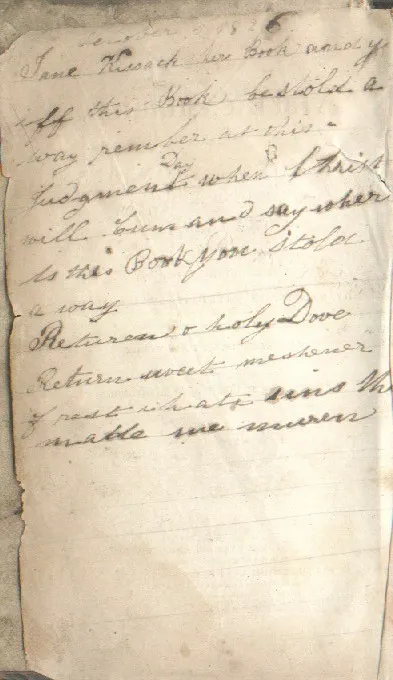 1826
Jane her Book and y
iff this Book be stold a
way rember at this
Day
Judgment when Christ
will Cum and say wher
is this Book you stold
a way
Returen o holy Dove
Return sweet meshener
of rest i hate sins th
made me muren